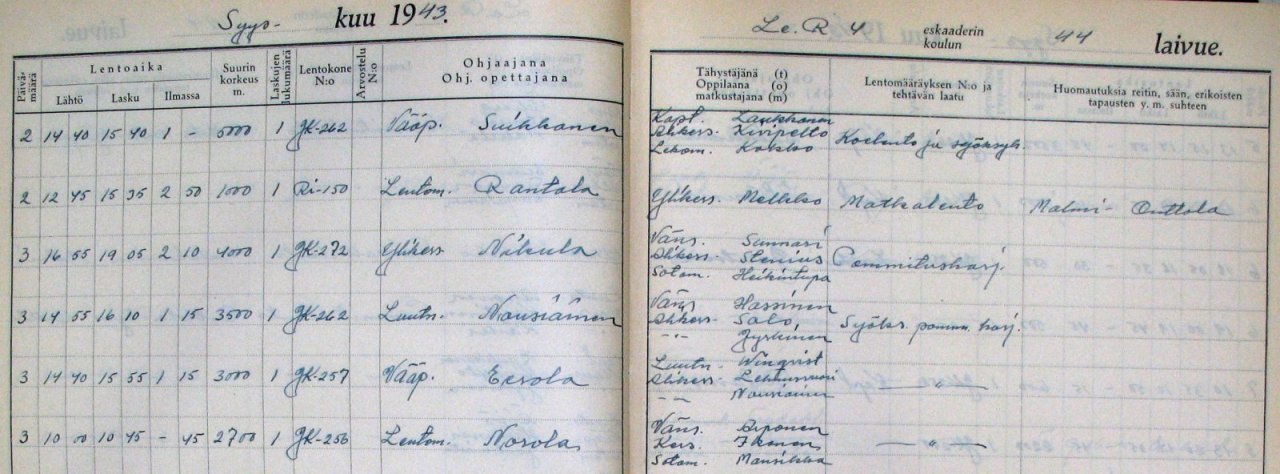 Syys- kuu 1943.
Le. R 4 eskaaderin koulun 44 laivue.
Päivämäärä
Lentoaika
Lähtö Lasku Ilmassa
Suurin korkeus m.
Laskujen lukumäärä
Lentokone N:o
Arvostelu N:o
Ohjaajana Ohj. opettajana
Tähystäjänä (t)
Oppilaana (o)
matkustajana (m)
Lentomääräyksen N:o ja tehtävän laatu
Huomautuksia reitin, sään, erikoisten tapausten y. m. suhteen
2 14 40 15 40 1 - 5000 1 JK-262 Vääp. Suikkanen
Kapt. Laukkanen
Alikers. Kivipelto
Koelento ja syöksyh.
2 12 45 15 35 2 50 1000 1 Ri-150 Lentom. Rantala
Ylikers. Melkko Matkalento Malmi- Onttola
3 16 55 19 05 2 10 4000 1 JK-272 Ylikers. Nikula
Väns. Sunnari
Alikers. Stenius Pommitusharj.
Sotam. Heikintupa
3 14 55 16 10 1 15 3500 1 JK-262 Luutn. Nousiainen
Väns. Hassinen
Alikers. Salo, Syöks. pomm. harj.
-"- Jyrkinen
3 14 40 15 55 1 15 3000 1 JK-257 Vääp. Eerola
Luutn. Winqvist
Alikers. -"-
-"- Nousiainen
3 10 00 10 45 - 45 2700 1 JK-256 Lentom. Norola
Väns. Arponen
Kers. Ikonen -"-
Sotam. Mansikka